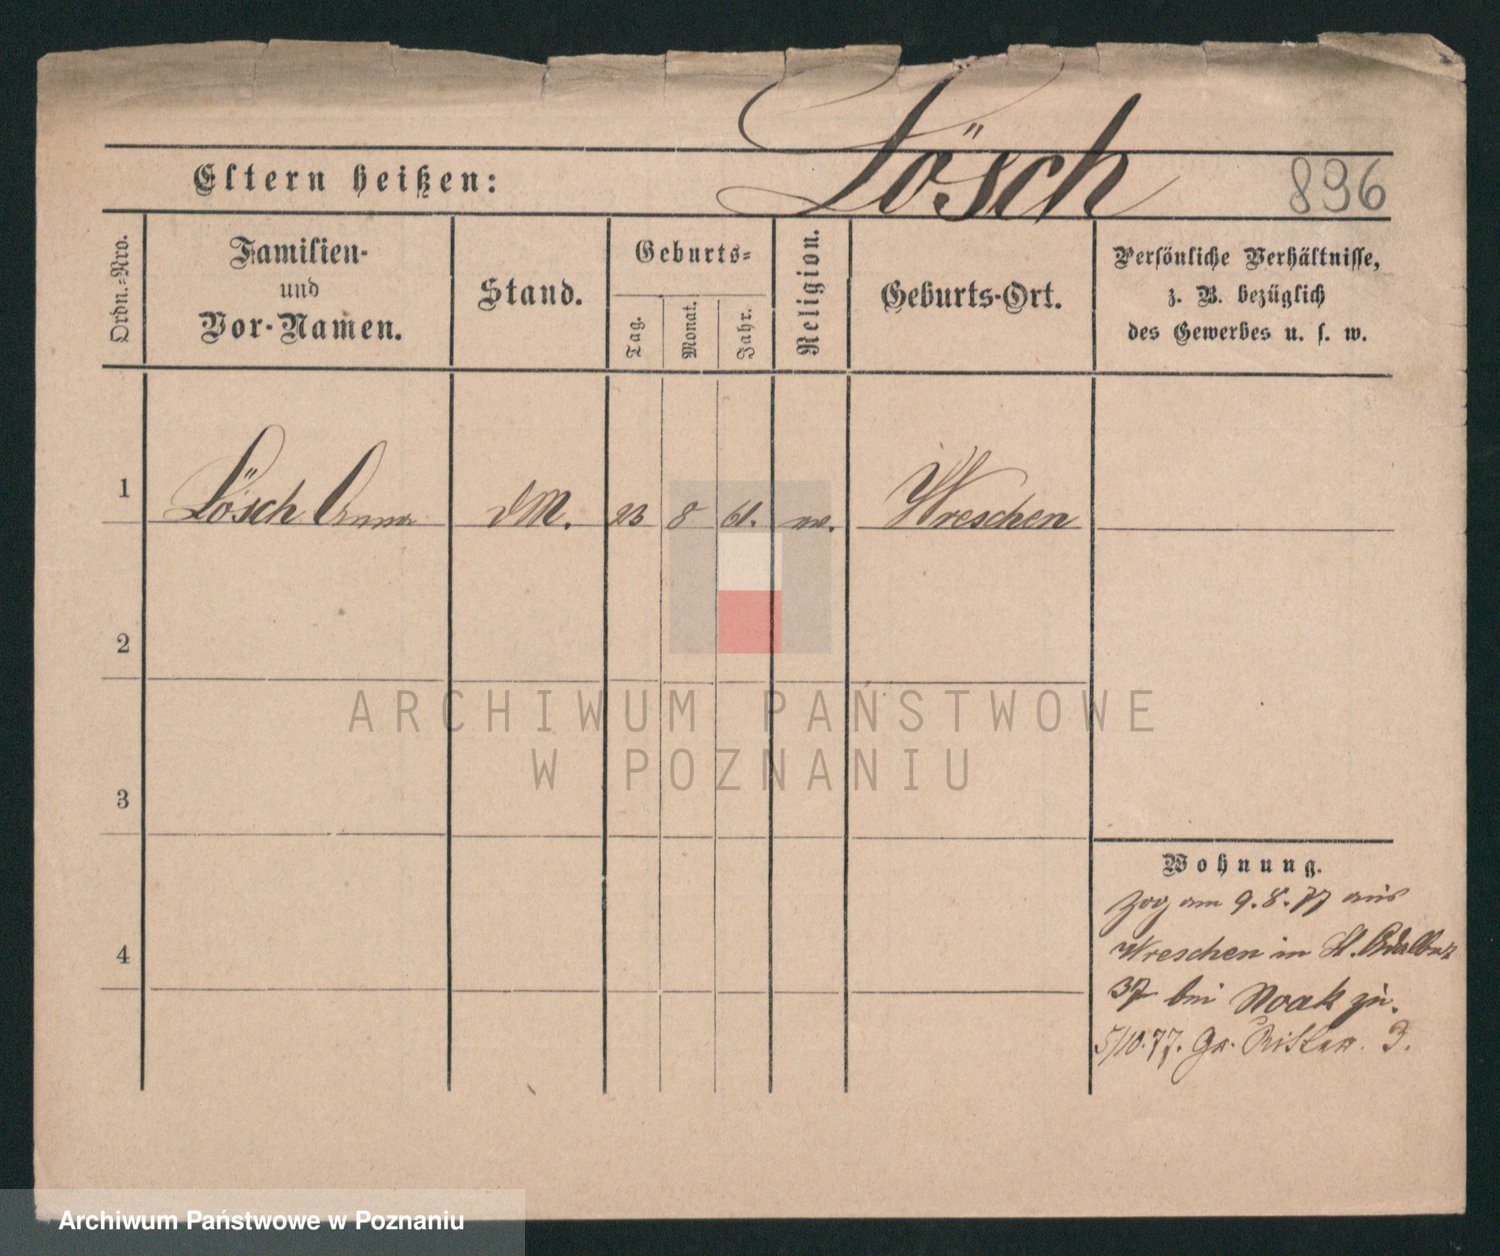 Lösch
Eltern heißen:
896
Ordn.=Nro.
Familien-
und
Vor-Namen.
Stand.
Geburts=
Tag.
Monat.
Jahr.
Religion.
Geburts-Ort.
Persönliche Verhältnisse,
z. B. bezüglich
des Gewerbes u. s. w.
1 Lösch Anna dM. 23 8 61. Wreschen
2
ARCHIWUM PAŃSTWOWE
W POZNANIU
3
Wohnung.
zog am 9.8.77 aus
Wreschen in St. Adalbert
37 bei Noak zu.
5/10.77. Gr. Ritter 3.
4
Archiwum Państwowe w Poznaniu